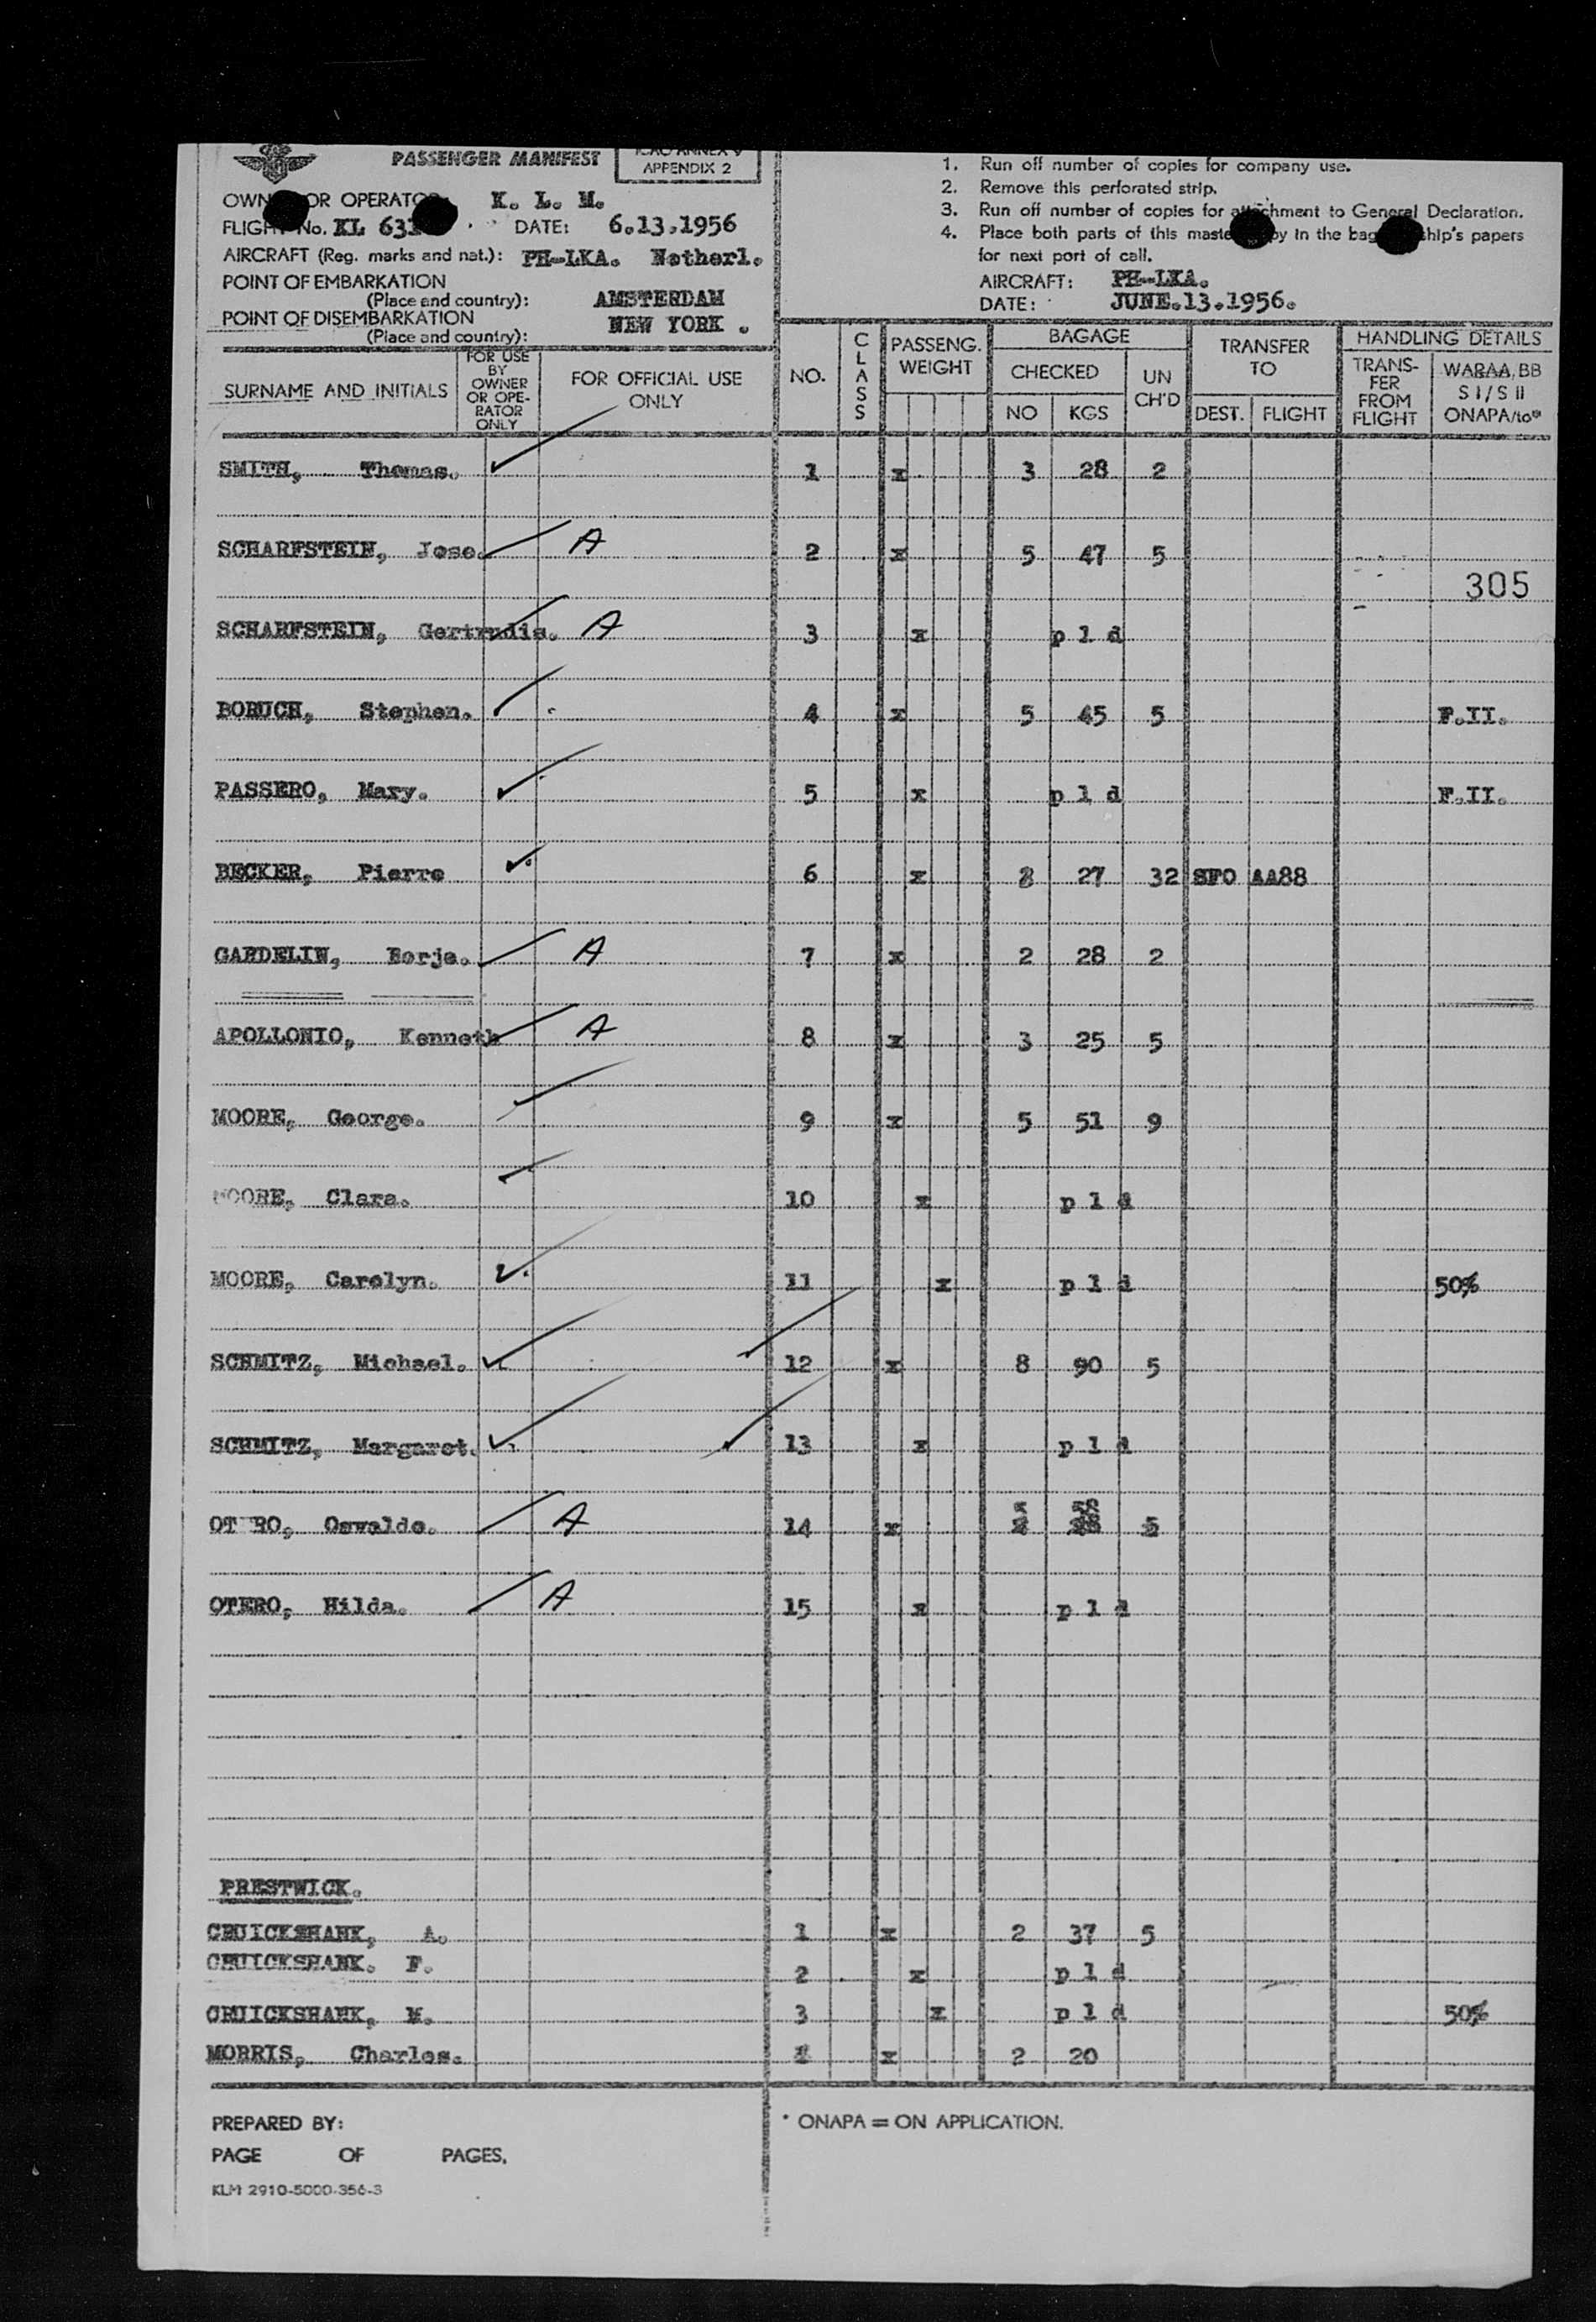 PASSENGER MANIFEST
ICAO ANNEX 9
APPENDIX 2
OWN OR OPERATO K. L. M.
FLIGHT No. KL 63 DATE: 6.13.1956
AIRCRAFT (Reg. marks and nat.): PH-LKA. Netherl.
POINT OF EMBARKATION
(Place and country): AMSTERDAM
POINT OF DISEMBARKATION NEW YORK .
(Place and country):
1. Run off number of copies for company use.
2. Remove this perforated strip.
3. Run off number of copies for attachment to General Declaration.
4. Place both parts of this maste py in the bag ship's papers
for next port of call.
AIRCRAFT: PH-LKA.
DATE: JUNE.13.1956.
SURNAME AND INITIALS
FOR USE BY OWNER OR OPE- RATOR ONLY
FOR OFFICIAL USE ONLY
NO.
CLASS
PASSENG. WEIGHT
BAGAGE
CHECKED
NO KGS
UN CH'D
TRANSFER TO
DEST. FLIGHT
HANDLING DETAILS
TRANS- FER FROM FLIGHT
WARAA, BB S I / S II ONAPA/to*
SMITH, Thomas. 1 x 3 28 2
SCHARFSTEIN, Jose. A 2 x 5 47 5
305
SCHARFSTEIN, Gertrudis. A 3 x p l d
BORUCH, Stephen. 4 x 5 45 5 F.II.
PASSERO, Mary. 5 x p l d F.II.
BECKER, Pierre 6 x 2 27 32 SFO AA88
GAEDELIN, Borje. A 7 x 2 28 2
APOLLONIO, Kenneth A 8 x 3 25 5
MOORE, George. 9 x 5 51 9
MOORE, Clara. 10 x p l d
MOORE, Carolyn. 11 x p l d 50%
SCHMITZ, Michael. 12 x 8 90 5
SCHMITZ, Margaret. 13 x p l d
5 58
OT RO, Oswaldo. A 14 x 5
OTERO, Hilda. A 15 x p l d
PRESTWICK.
CRUICKSHANK, A. 1 x 2 37 5
CRUICKSHANK. F. 2 x p l d
CRUICKSHANK, M. 3 x p l d 50%
MORRIS, Charles. x 2 20
PREPARED BY:
PAGE OF PAGES,
KLM 2910-5000-356-3
* ONAPA = ON APPLICATION.